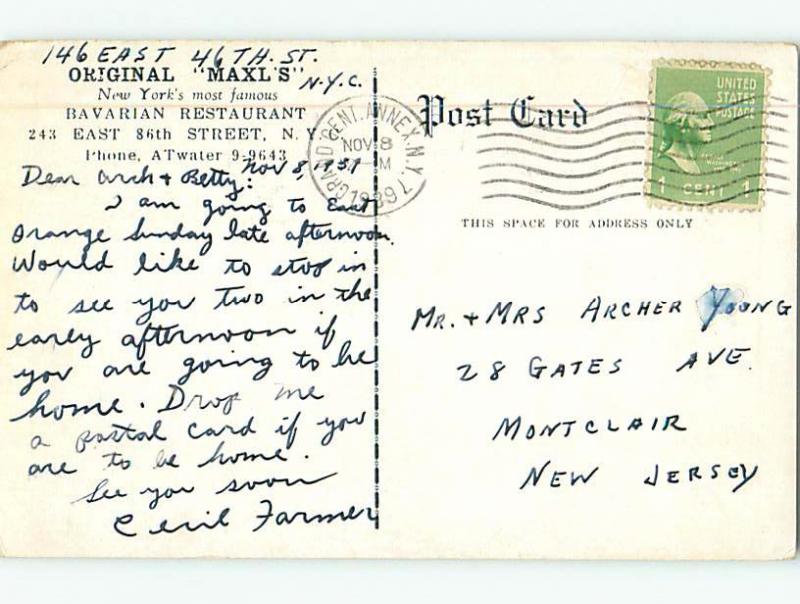 146 EAST 46TH. ST.
N.Y.C.
ORIGINAL "MAXL'S"
New York's most famous
BAVARIAN RESTAURANT
243 EAST 86th STREET, N. Y.
Phone, ATwater 9-9643
Nov 8, 1939
Dear Arch + Betty:
I am going to East
Orange Sunday late afternoon.
Would like to stop in
to see you two in the
early afternoon if
you are going to be
home. Drop me
a postal card if you
are to be home.
See you soon
Cecil Farmer
GRAND CENT. ANNEX. N.Y.
NOV 8
M
1939
7
Post Card
UNITED
STATES
POSTAGE
1 CENT 1
THIS SPACE FOR ADDRESS ONLY
MR. + MRS ARCHER YOUNG
28 GATES AVE.
MONTCLAIR
NEW JERSEY